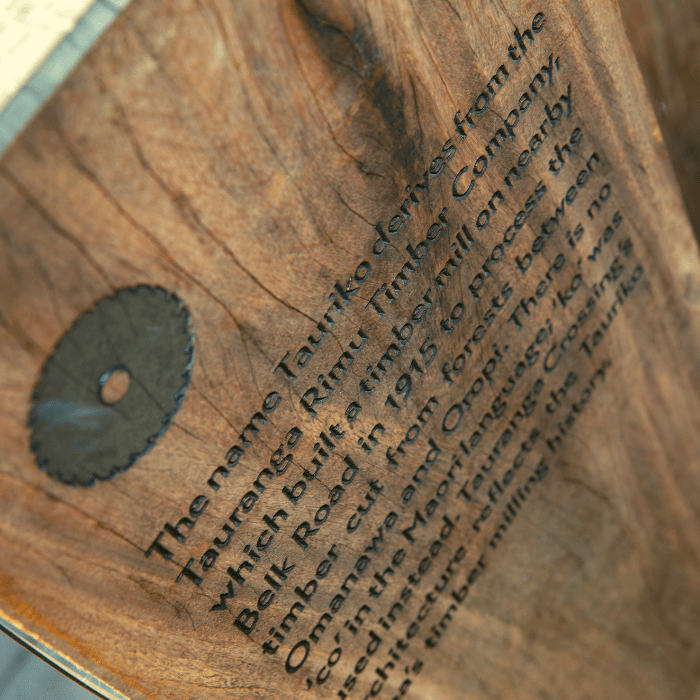 The name Tauriko derives from the
Tauranga Rimu Timber Company,
which built a timber mill on nearby
Belk Road in 1915 to process the
timber cut from forests between
Omanawa and Oropi. There is no
'co' in the Maori language; 'ko' was
used instead. Tauranga Crossing's
architecture reflects the Tauriko
timber milling history.